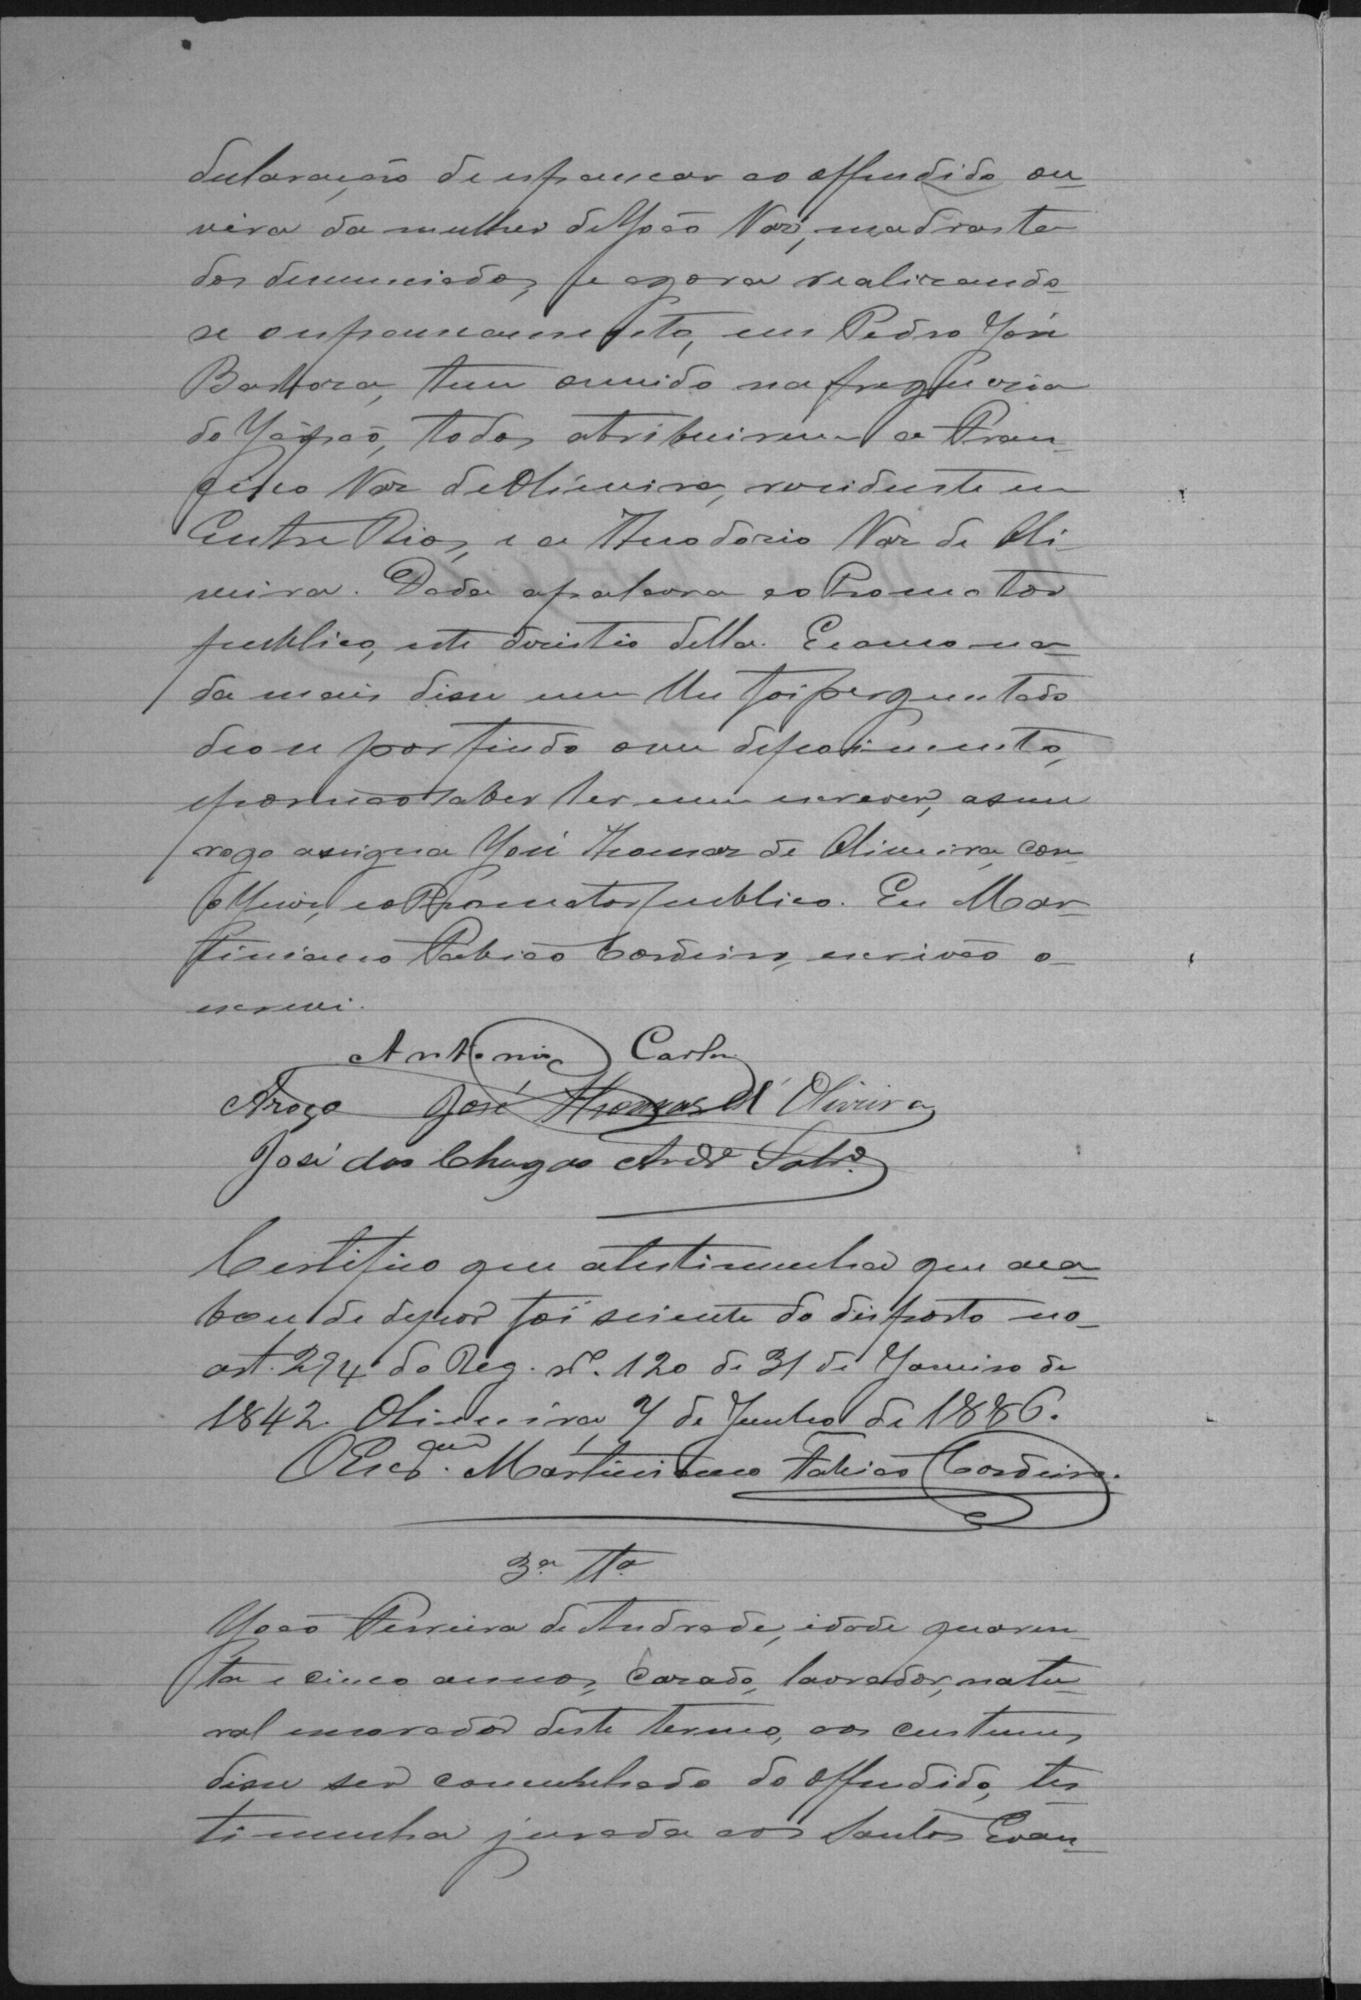 declaração de espancar ao offendido ou-
vira da mulher de João Vaz, madrasta
dos denunciados, e agora realizando-
se o espancamento, em Pedro José
Barbosa, tem ouvido na freguezia
do Japão, todos attribuirem a Fran-
cisco Vaz de Oliveira, residente em
Entre Rios, e a Theodorio Vaz de Oli-
veira. Dada a palavra ao Promotor
publico, este desistio della. E como na-
da mais disse nem lhe foi perguntado
deo-se por findo o seu depoimento,
e por não saber ler nem escrever, a seu
rogo assigna José Thomaz de Oliveira, com
o Juiz, e o Promotor publico. Eu Mar-
tiniano Fabião Cordeiro, escrivão o
escrevi.
Antonio Carlos
Arogo José Thomas d'Oliveira
José das Chagas Andr.e Sobr.o
Certifico que a testimunha que aca-
bou de depor foi sciente do disposto no
art. 294 do Reg. nº. 120 de 31 de Janeiro de
1842. Oliveira, 7 de Junho de 1886.
O Escr.am Martiniano Fabião Cordeiro.
3.a Tt.a
João Ferreira de Andrade, idade quaren-
ta e cinco annos, cazado, lavrador, natu-
ral e morador deste termo, aos custumes
disse ser concunhado do offendido, tes-
timunha jurada aos Santos Evan-